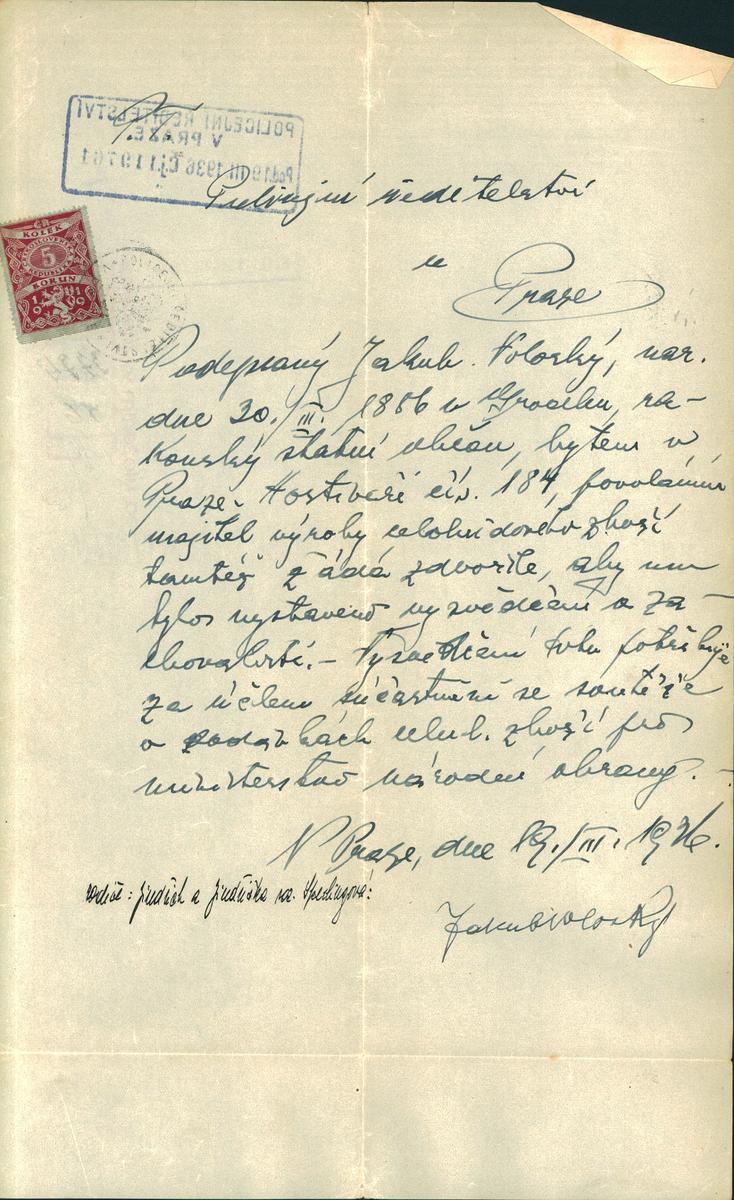 POLICEJNÍ ŘEDITELSTVÍ
V PRAZE.
Pod. 19 III 1936 Čj. 119761
Policejní ředitelství
v
Praze
KOLEK
5
KORUN
Podepsaný Jakub Voloský, nar.
dne 20./III. 1886 v Grodku, ra-
kouský státní občan, bytem v
Praze-Hostivaři čís. 184, povoláním
majitel výroby celuloidového zboží
tamtéž žádá zdvořile, aby mu
bylo vystaveno vysvědčení o za-
chovalosti.- Vysvědčení toto potřebuje
za účelem súčastnění se soutěže
o dodávkách celul. zboží pro
ministerstvo národní obrany.-
V Praze, dne 19./III. 1936.
rodiče: Jindřich a Jindřiška roz.
Jakub Voloský